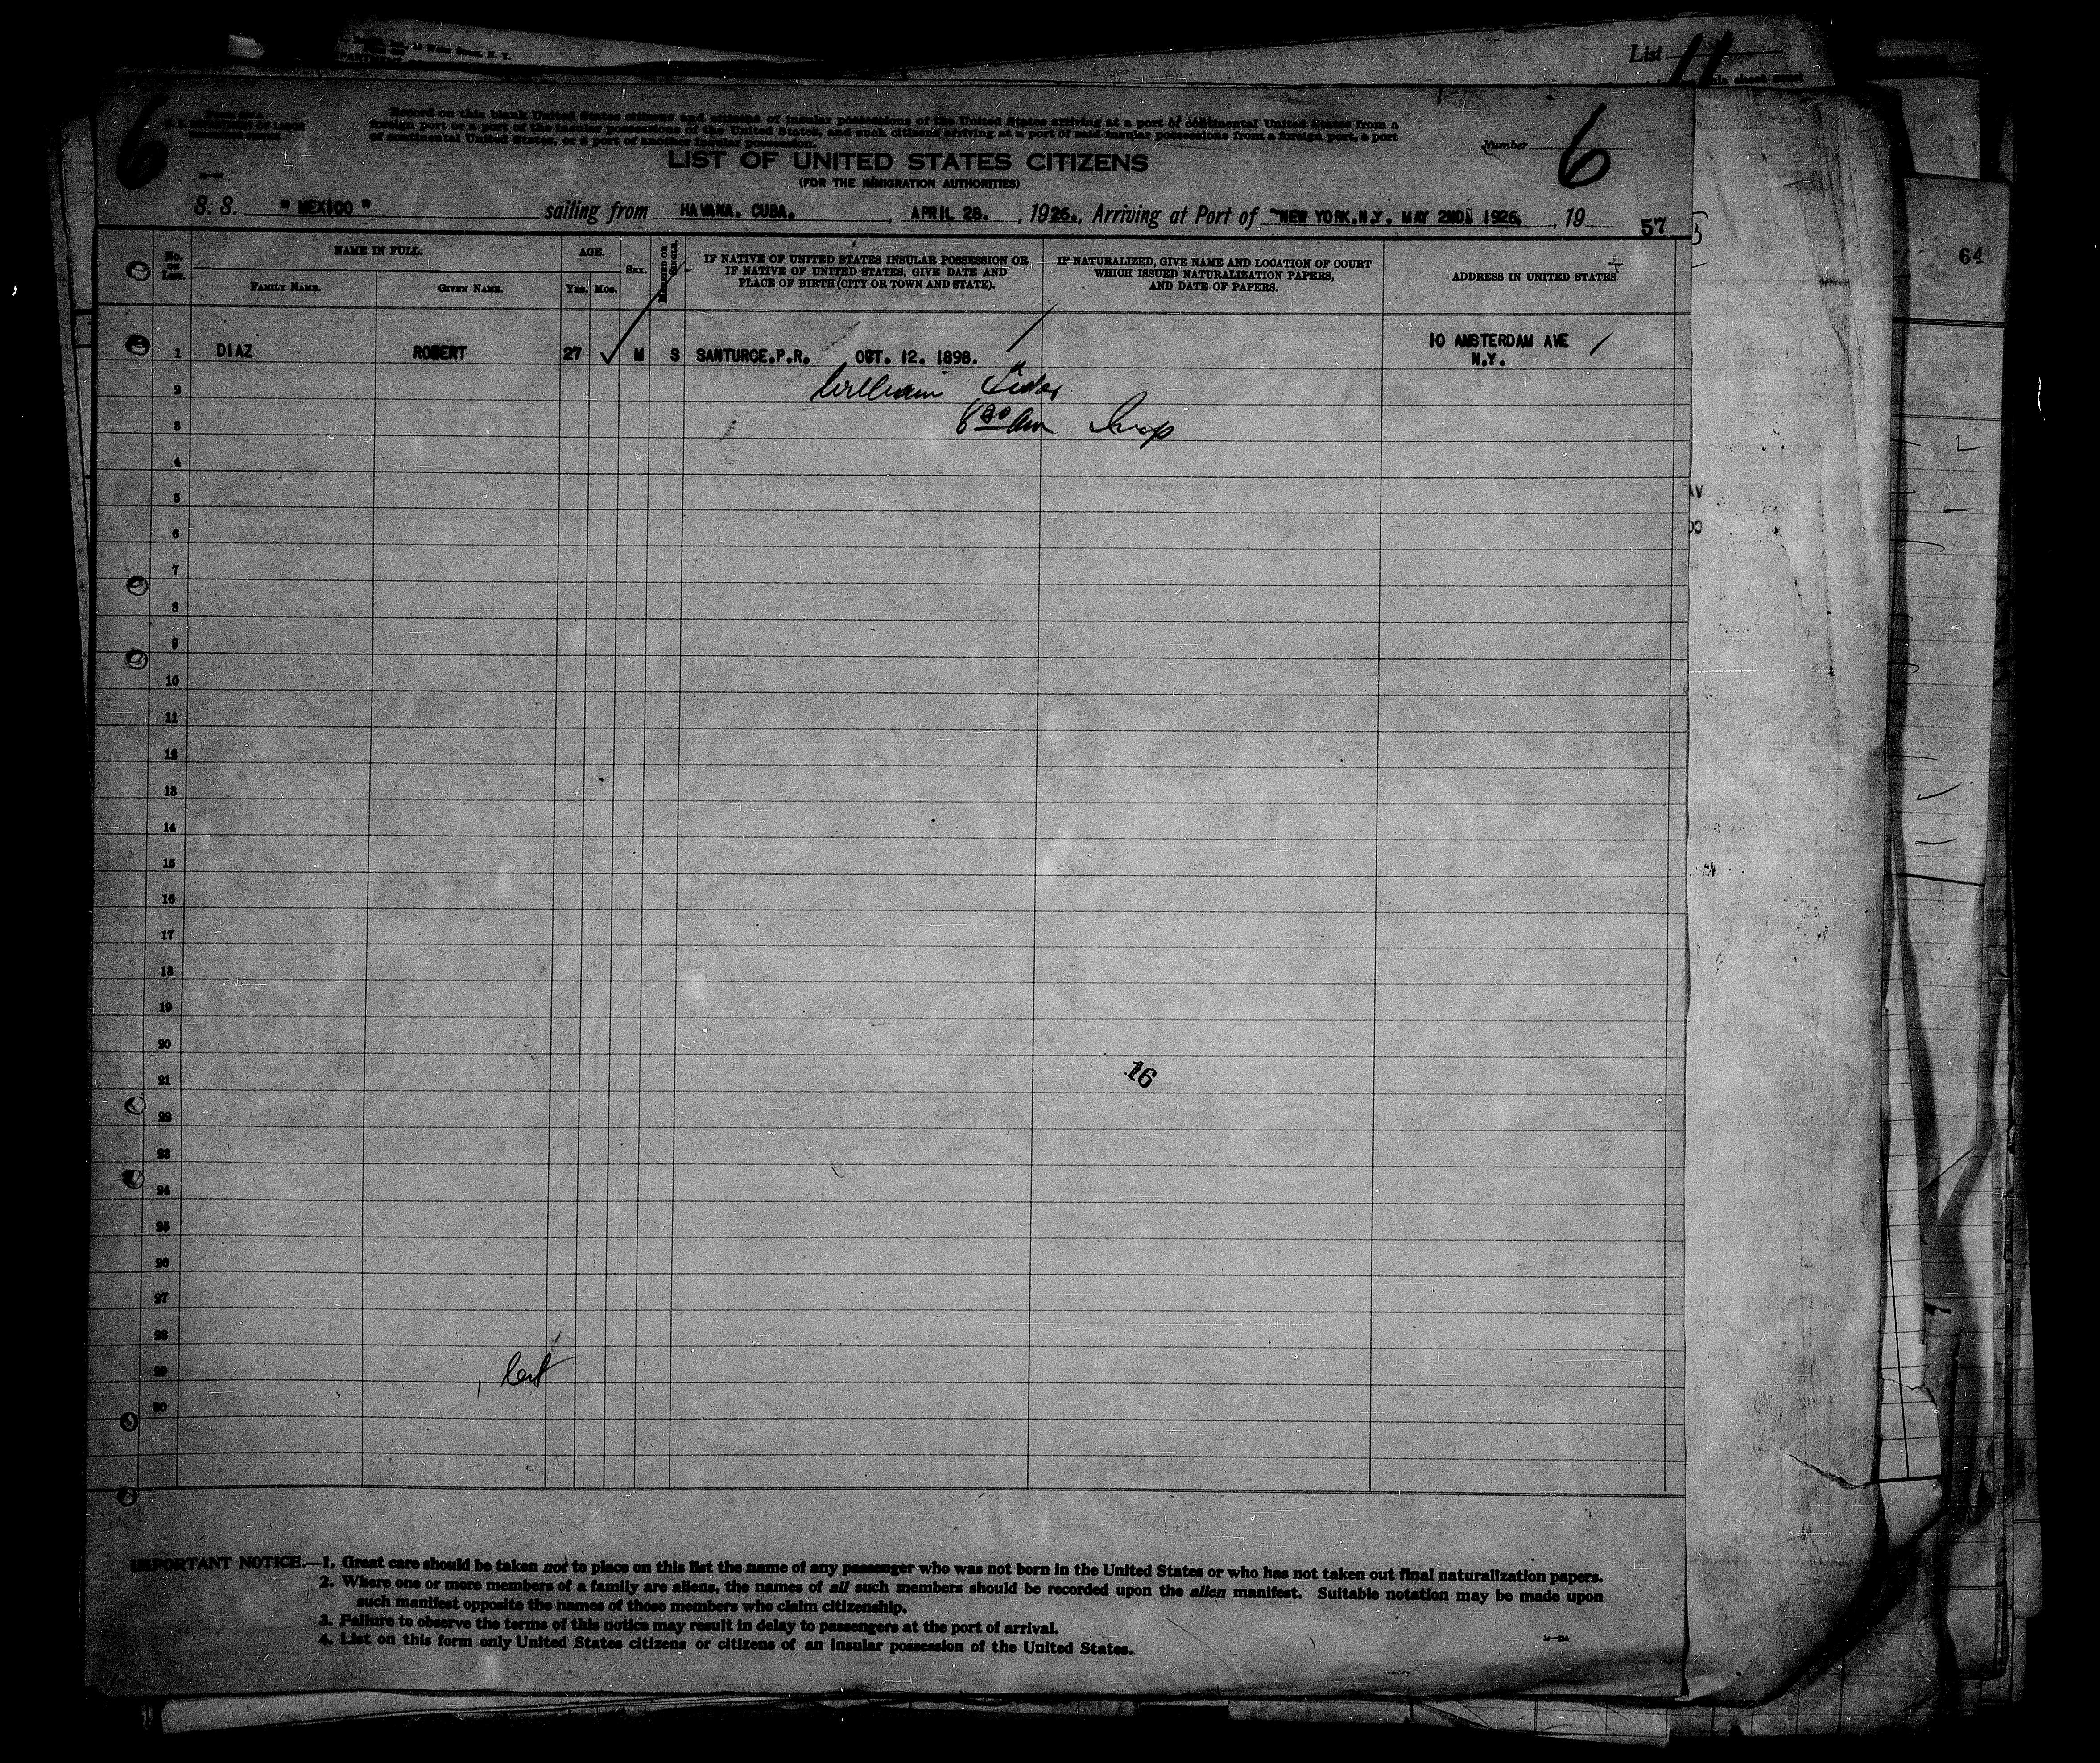 List 11
6
U. S. DEPARTMENT OF LABOR
Record on this blank United States citizens and citizens of insular possessions of the United States arriving at a port of continental United States from a
foreign port or a port of the insular possessions of the United States, and such citizens arriving at a port of said insular possessions from a foreign port, a port
of continental United States, or a port of another insular possession.
Number 6
LIST OF UNITED STATES CITIZENS
(FOR THE IMMIGRATION AUTHORITIES)
S. S. "MEXICO" sailing from HAVANA. CUBA. , APRIL 28. , 1926., Arriving at Port of NEW YORK.N.Y. MAY 2ND 1926. , 19
57
64
No. on List.
NAME IN FULL.
FAMILY NAME.
GIVEN NAME.
AGE.
YRS. MOS.
SEX.
MARRIED OR SINGLE.
IF NATIVE OF UNITED STATES INSULAR POSSESSION OR
IF NATIVE OF UNITED STATES, GIVE DATE AND
PLACE OF BIRTH (CITY OR TOWN AND STATE).
IF NATURALIZED, GIVE NAME AND LOCATION OF COURT
WHICH ISSUED NATURALIZATION PAPERS,
AND DATE OF PAPERS.
ADDRESS IN UNITED STATES
1 DIAZ ROBERT 27 M S SANTURCE.P.R. OCT. 12. 1898. 10 AMSTERDAM AVE
N.Y.
2 William
3 Insp
4
5
6
7
8
9
10
11
12
13
14
15
16
17
18
19
20
21 16
22
23
24
25
26
27
28
29
30
IMPORTANT NOTICE.—1. Great care should be taken not to place on this list the name of any passenger who was not born in the United States or who has not taken out final naturalization papers.
2. Where one or more members of a family are aliens, the names of all such members should be recorded upon the alien manifest. Suitable notation may be made upon
such manifest opposite the names of those members who claim citizenship.
3. Failure to observe the terms of this notice may result in delay to passengers at the port of arrival.
4. List on this form only United States citizens or citizens of an insular possession of the United States.